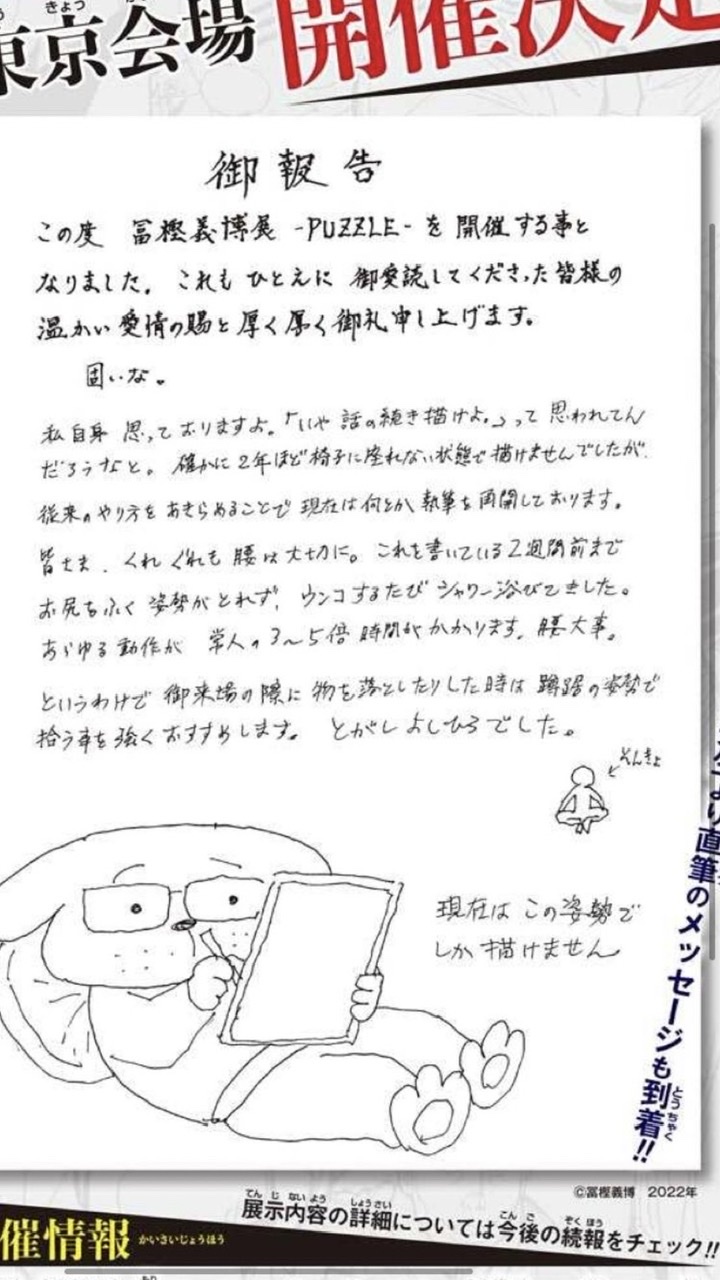 きょう
東京会場
開催決定
御報告
この度 冨樫義博展 -PUZZLE- を 開催する事と
なりました。これも ひとえに 御愛読してくださった皆様の
温かい愛情の賜と厚く厚く御礼申し上げます。
固いな。
私自身 思っておりますよ。「いや 話の続き描けよ。」って 思われてん
だろうなと。確かに2年ほど椅子に座れない状態で描けませんでしたが、
従来のやり方をあきらめることで 現在は何とか 執筆を再開しております。
皆さま、くれぐれも 腰は大切に。これを書いている2週間前まで
お尻をふく 姿勢がとれず、ウンコするたび シャワー浴びてました。
あらゆる動作が 常人の3〜5倍 時間がかかります。腰大事。
というわけで 御来場の際に 物を落としたりした時は 蹲踞の姿勢で
拾う事を強くおすすめします。 とがしよしひろでした。
そんきょ
現在は この姿勢で
しか 描けません
より直筆のメッセージも到着!!
とうちゃく
©冨樫義博 2022年
催情報 かいさいじょうほう
てんじないよう しょうさい こんご ぞくほう
展示内容の詳細については今後の続報をチェック!!